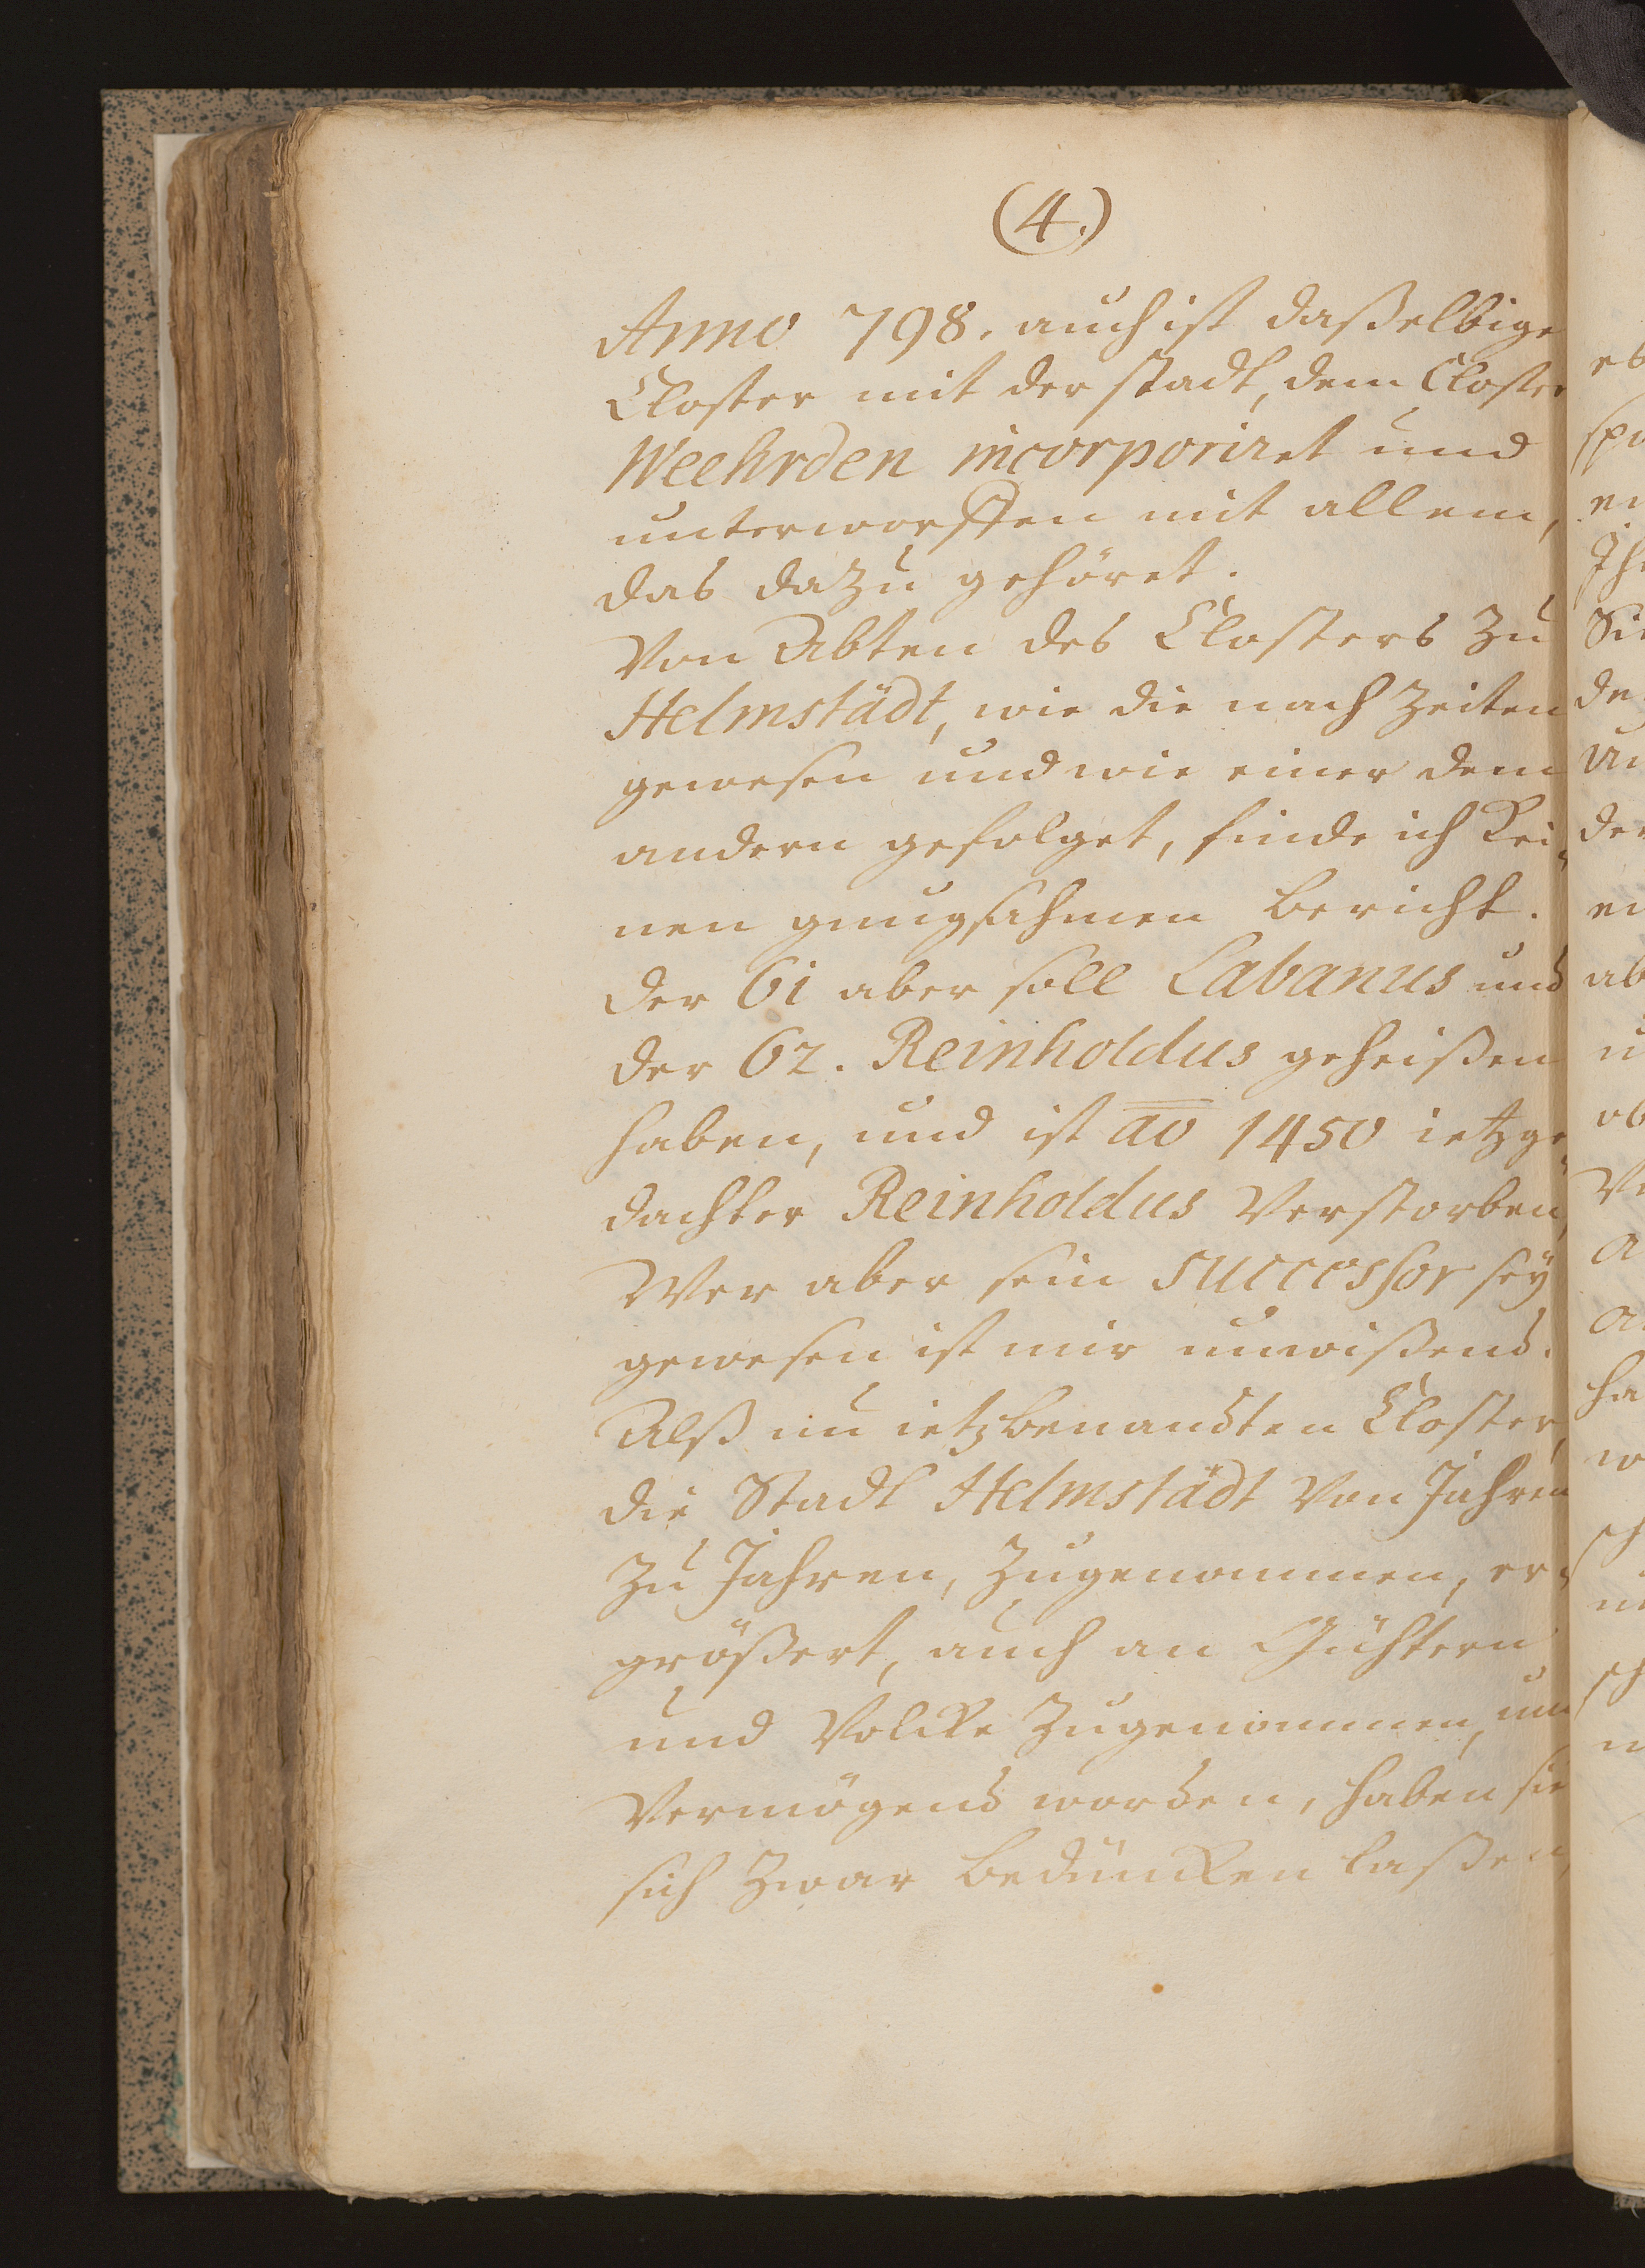 (4.)
Anno 798. auch ist daßelbige
Closter mit der stadt, dem Closter
Weehrden incorporiret und
unterworffen mit allem,
das dazu gehöret.
Von Abten des Closters zu
Helmstädt, wie die nach Zeiten
gewesen und wie einer dem
andern gefolget, finde ich kei„
nen gnugsahmen bericht.
der 61 aber soll Labanus und
der 62. Reinholdus geheißen
haben, und ist ao 1450 ietzge„
dachter Reinholdus Verstorben,
Wer aber sein successor seÿ
gewesen ist mir unwißend.
Alß nu ietzbenandten Closter,
die Stadt Helmstädt Von Jahren
zu Jahren, zugenommen, er„
größert, auch an Gühtern
und Volcke zugenommen, und
Vermögend worden, haben sie
sich zwar bedüncken laßen,